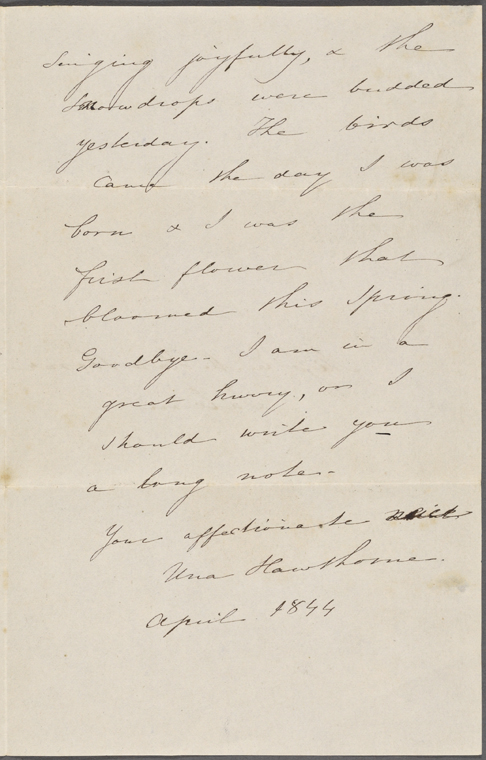 singing joyfully, & the
snowdrops were budded
yesterday. The birds
came the day I was
born & I was the
first flower that
bloomed this Spring.
Goodbye. I am in a
great hurry, or I
should write you
a long note.
Your affectionate
Una Hawthorne.
April 1844